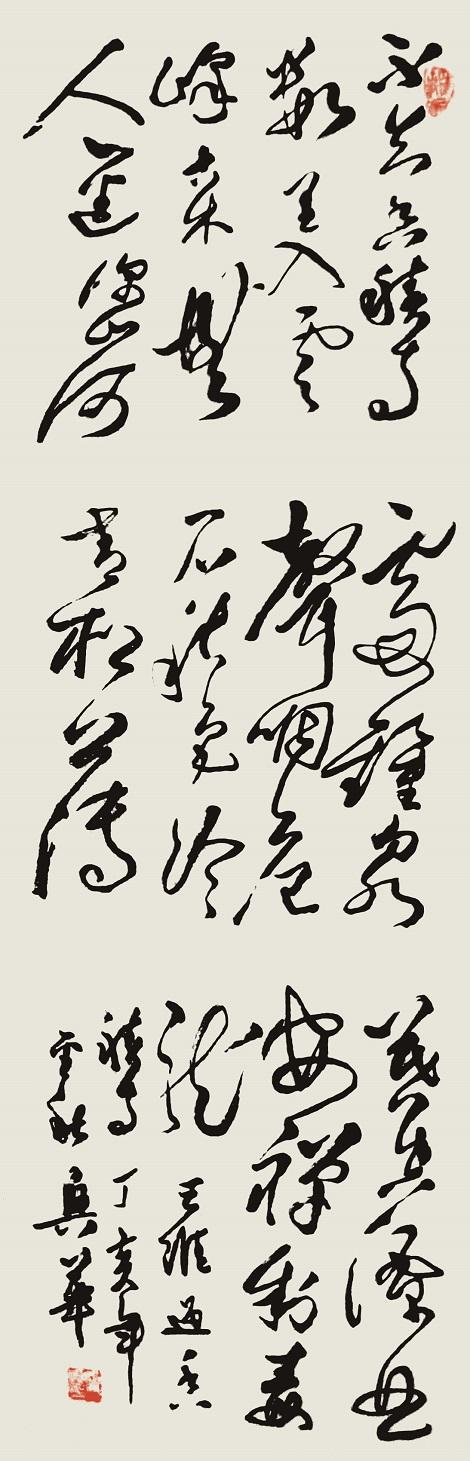 不知香積寺
數里入雲
峰古木無
人逕深山何
處鐘泉
聲咽危
石秋色冷
青松薄
暮空潭曲
安禪制毒
龍 王維過香
積寺 丁亥年
秋 興華